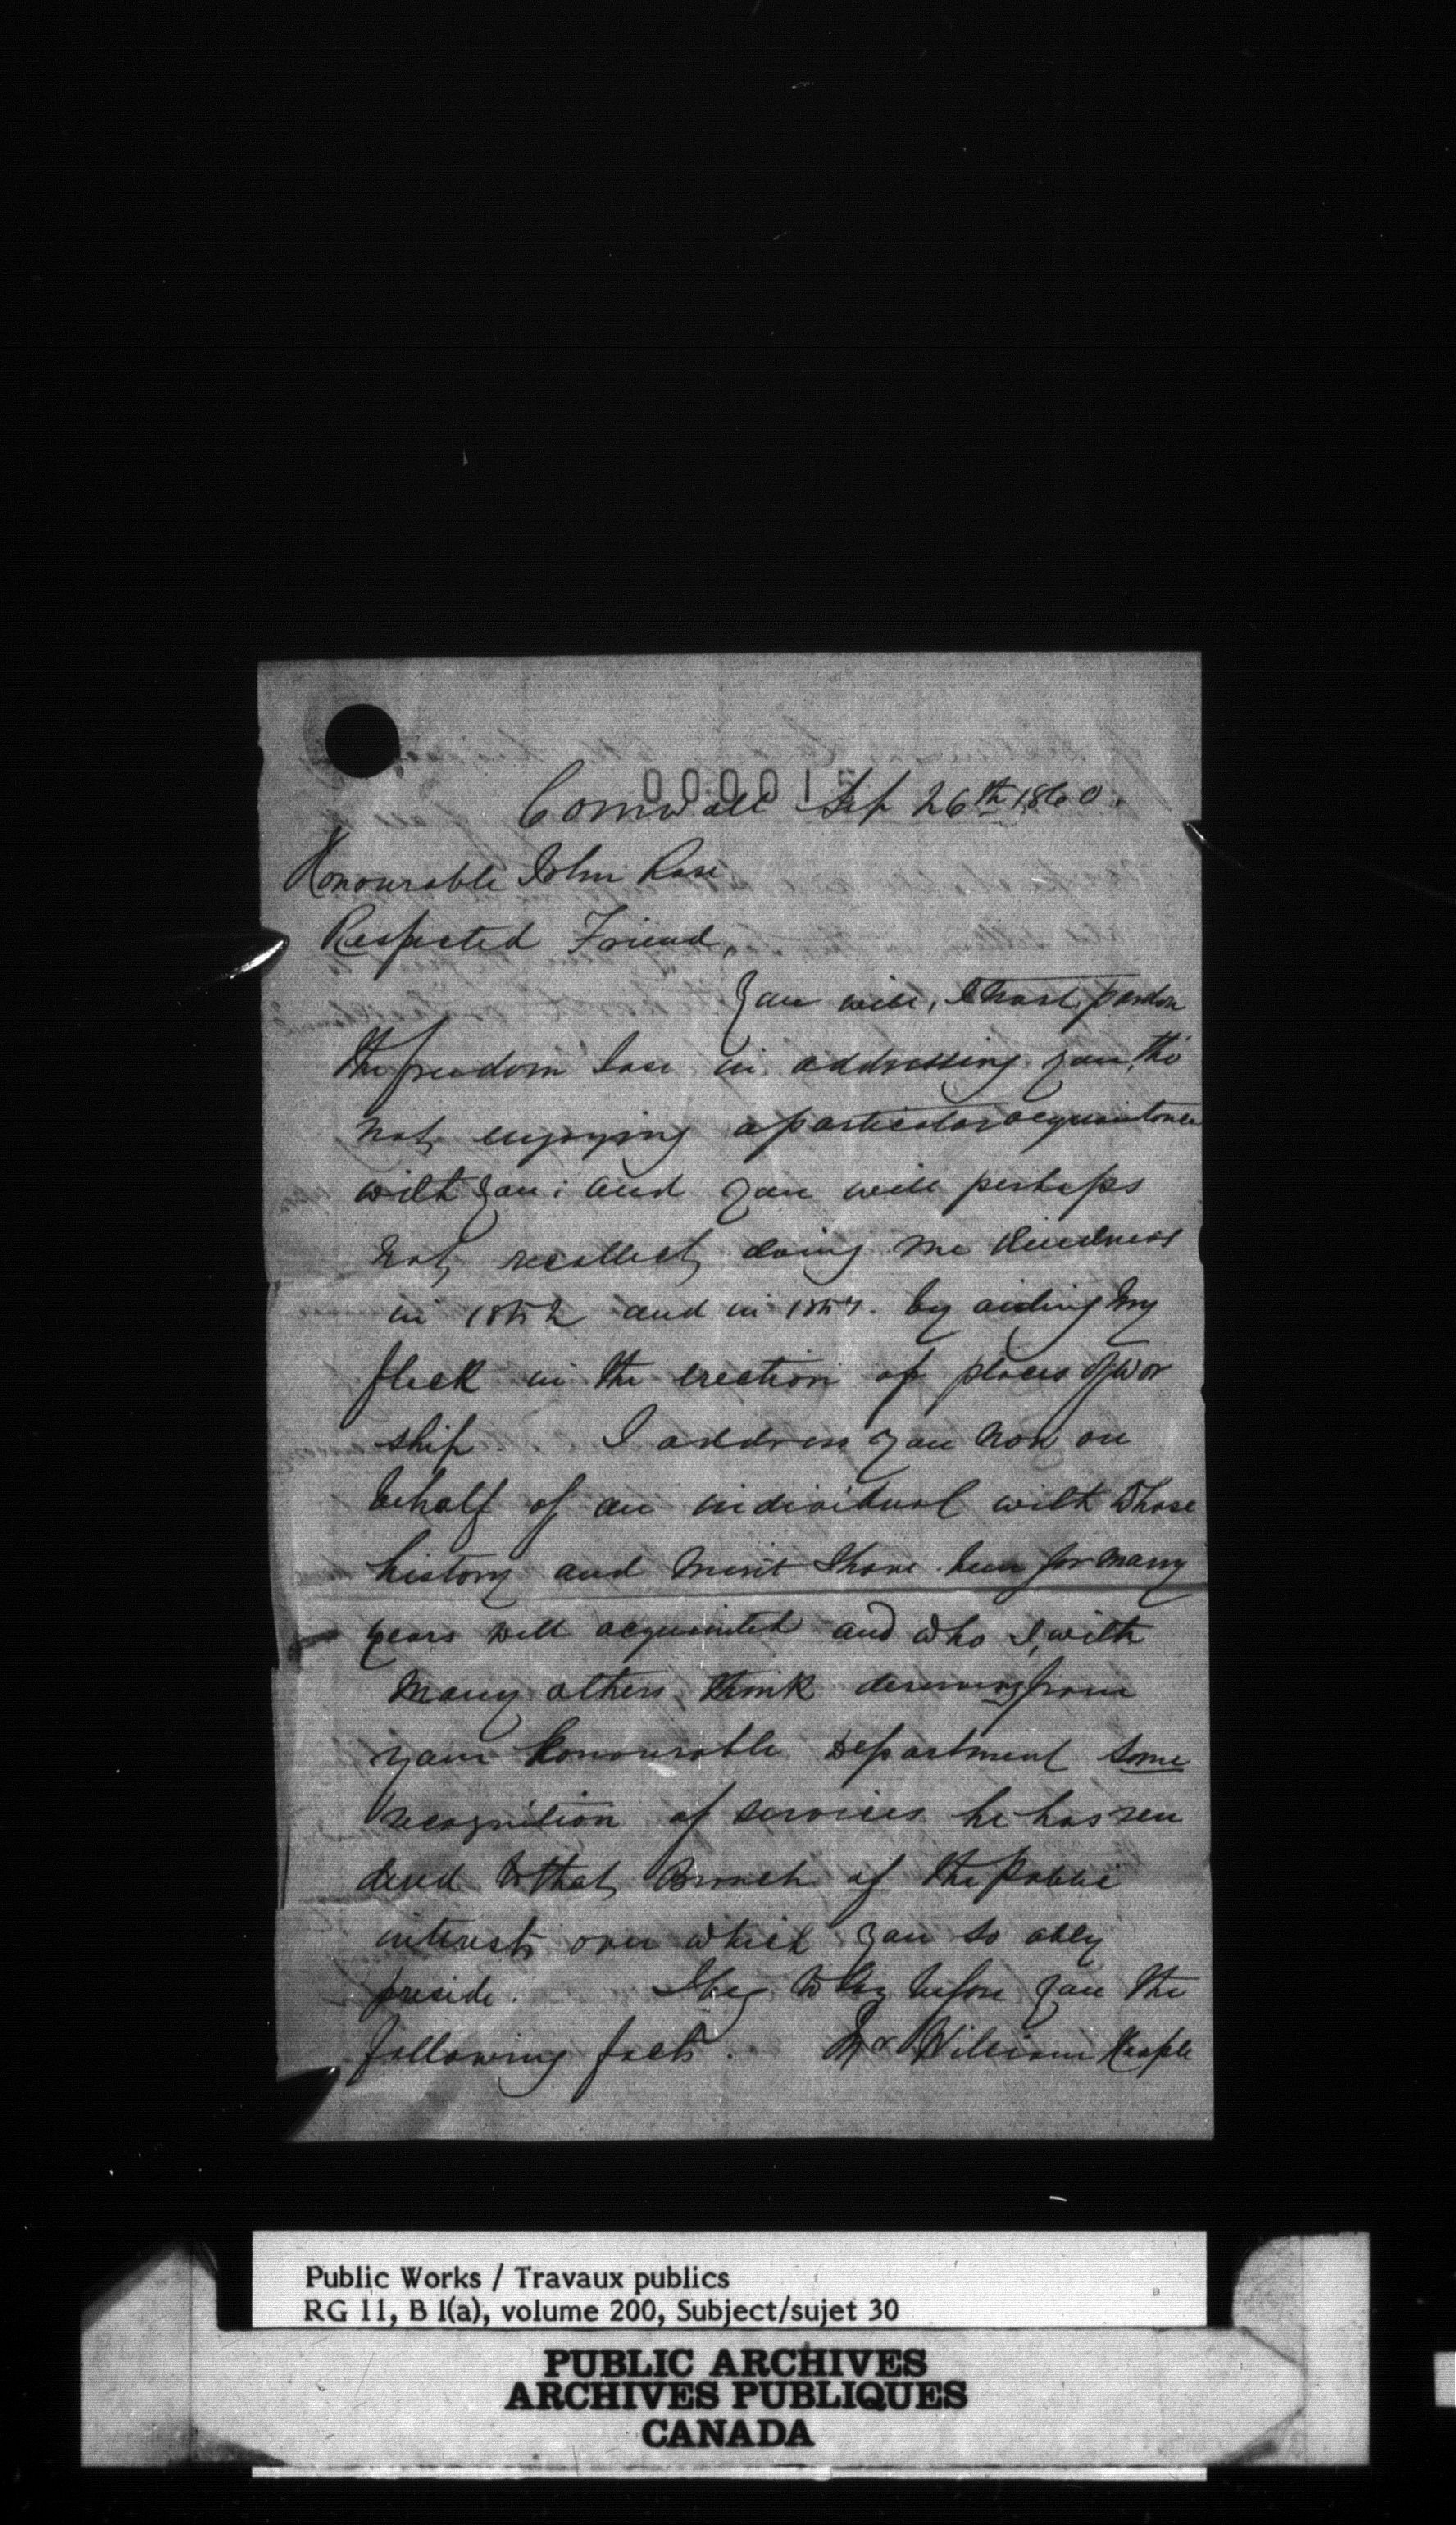 000015
Cornwall Sep 26th 1860.
Honourable John Rose
Respected Friend,
You will, I trust, pardon
the freedom I use in addressing you, tho'
not enjoying a particular acquaintance
with you; and you will perhaps
not recollect doing me kindness
in 1852 and in 1857. by aiding my
flock in the erection of places of wor
ship. I address you now on
behalf of an individual with whose
history and merit I have been for many
years well acquainted and who I, with
many others, think deserving from
your honourable Department some
recognition of services he has ren
dered to that Branch of the public
interests over which you so ably
preside. I beg to lay before you the
following facts. Mr William
Public Works / Travaux publics
RG 11, B 1(a), volume 200, Subject/sujet 30
PUBLIC ARCHIVES
ARCHIVES PUBLIQUES
CANADA